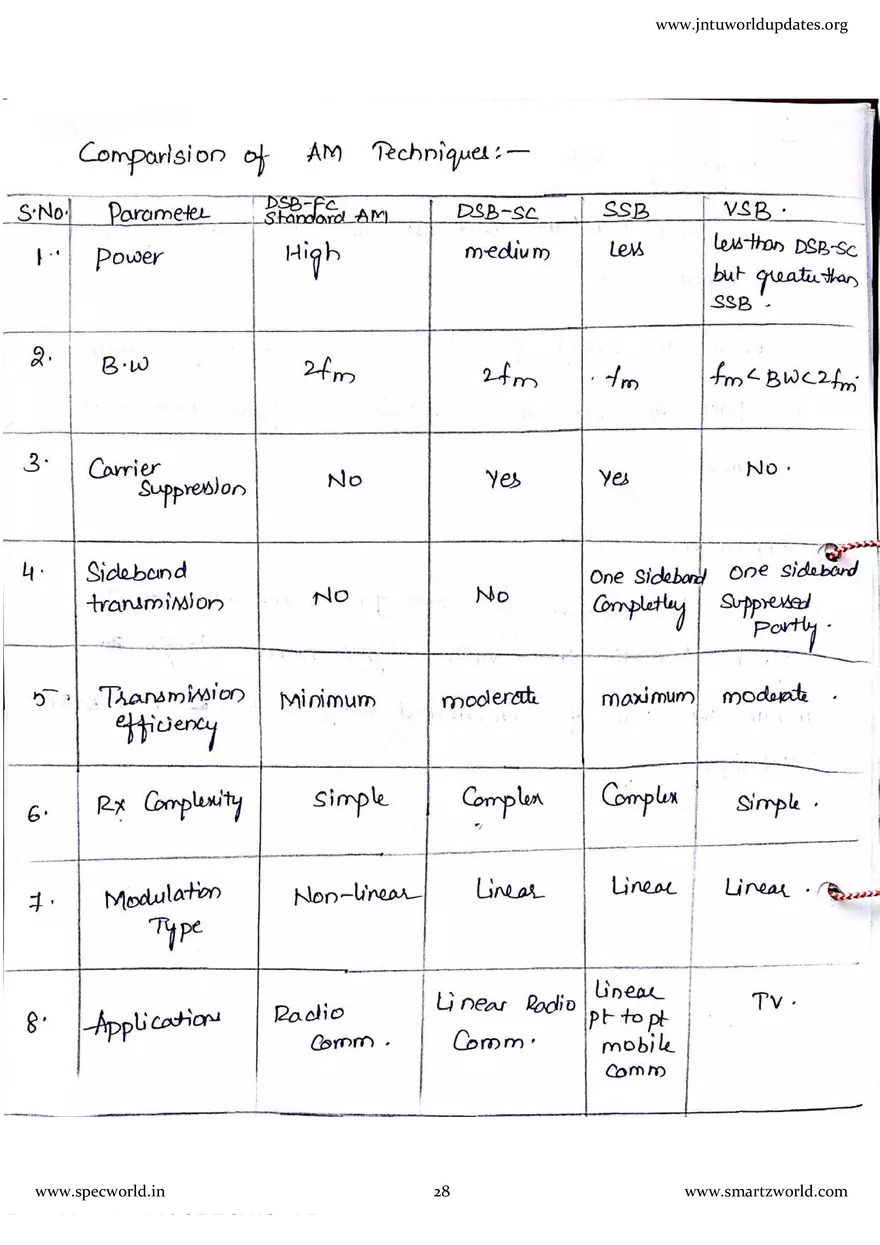 www.jntuworldupdates.org
Comparision of AM Techniques:-
S.No. Parameter DSB-FC Standard AM DSB-SC SSB VSB.
1. Power High medium Less Less than DSB-SC
but greater than
SSB.
2. B.W 2fm 2fm fm fm < BW < 2fm
3. Carrier Suppression No Yes Yes No.
4. Sideband transmission No No One Sideband Completley One Sideband
Suppressed
Partly.
5. Transmission efficiency Minimum moderate maximum moderate.
6. Rx Complexity Simple Complex Complex Simple.
7. Modulation Type Non-linear Linear Linear Linear.
8. Applications Radio Comm. Linear Radio Comm. Linear
pt to pt
mobile
Comm TV.
www.specworld.in 28 www.smartzworld.com